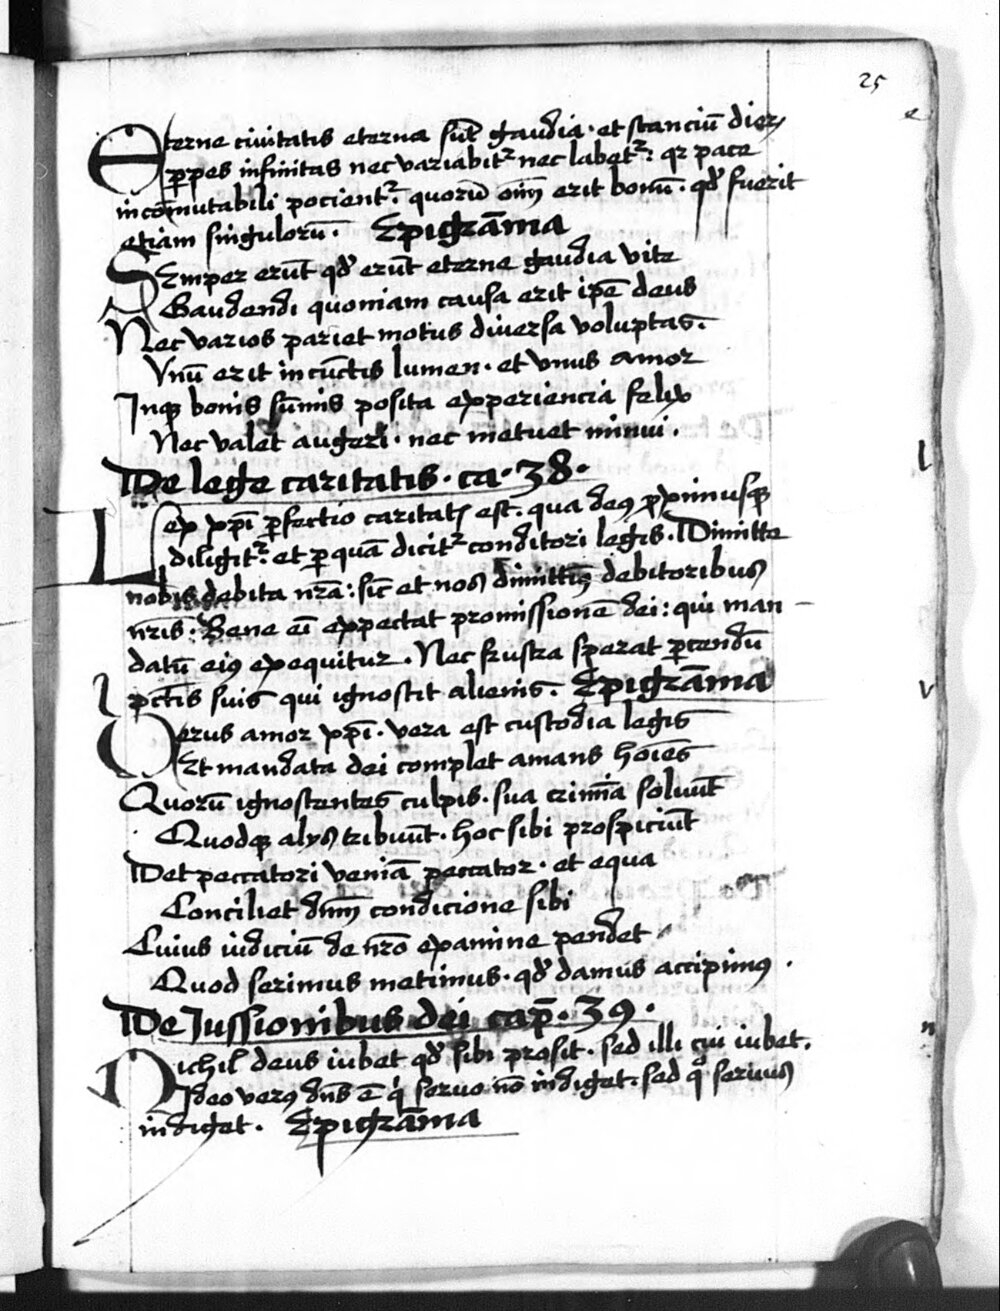 25
Eterne ciuitatis eterna sūt gaudia · et stanciū dieꝝ
ꝑpes infinitas nec variabitᷣ nec labetᷣ : qꝛ pace
incōmutabili pocientᷣ : quorū oīm erit bonū · qđ fuerit
etiam singulorū · Epigrāma
SEmper erūt qđ erūt eterne gaudia vite
Gaudendi quoniam causa erit ip̄e deus
Nec varios pariet motus diuersa voluptas ·
Vnū erit in cūctis lumen · et vnus amor
Inqꝫ bonis sūmis posita experiencia felix
Nec valet augeri · nec metuet minui ·
De lege caritatis · ca · 38 ·
Lex xp̄i ꝑfectio caritatꝭ est · qua deꝰ ꝓximusqꝫ
diligitᷣ : et ꝑ quā dicitᷣ conditori legis · Dimitte
nobis debita nr̄a : sic̄ et nos dimittimꝰ debitoribus
nr̄is : Bene eī expectat promissionē dei : qui man -
datū eiꝰ exequitur · Nec frustra sperat ꝑcendū
pct̄is suis qui ignoscit alienis · Epigrāma
Verus amor xp̄i · vera est custodia legis
Et mandata dei complet amans hoīes
Quorū ignoscentes culpis · sua crimīa soluūt
Quodqꝫ alijs tribuūt · hoc sibi prospiciūt
Det peccatori veniā peccator · et equa
Conciliet dn̄m condicione sibi
Cuius iudiciū de nr̄o examine pendet
Quod serimus metimus · qđ damus accipimꝰ ·
De Jussionibus dei cap̄ · 39 ·
Nichil deus iubet qđ sibi prosit · sed illi cui iubet ·
Ideo verꝰ dn̄s ē qͥ seruo nō indiget · sed qͦ seruus
indiget · Epigrāma